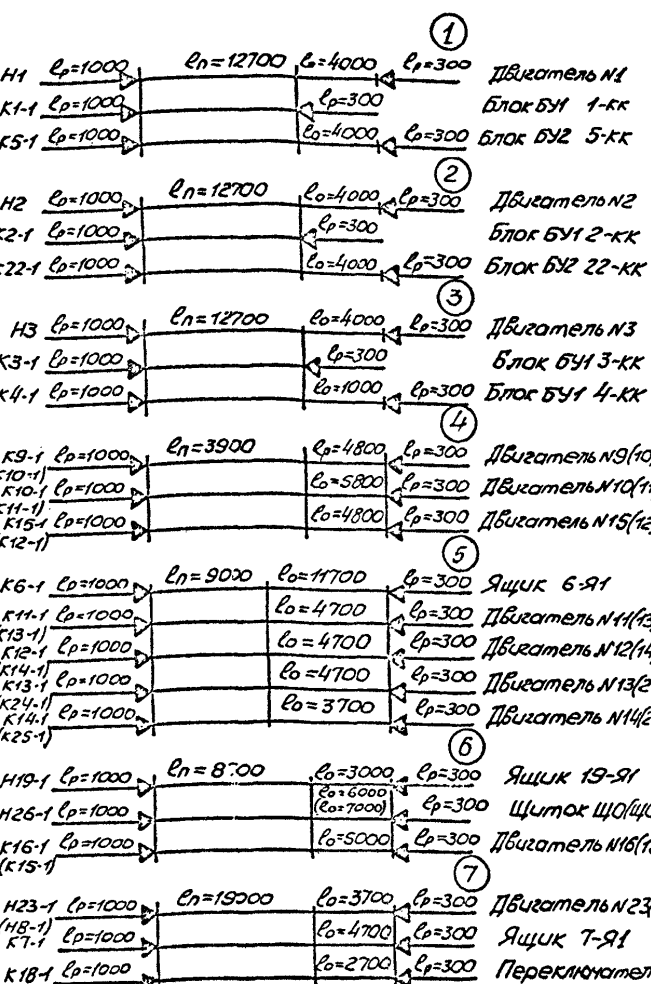 1
Н1 ℓр=1000 ℓп=12700 ℓо=4000 ℓр=300 Двигатель N1
К1-1 ℓр=1000 ℓр=300 Блок БУ1 1-кк
К5-1 ℓр=1000 ℓо=4000 ℓр=300 Блок БУ2 5-кк
2
Н2 ℓр=1000 ℓп=12700 ℓо=4000 ℓр=300 Двигатель N2
К2-1 ℓр=1000 ℓр=300 Блок БУ1 2-кк
К22-1 ℓр=1000 ℓо=4000 ℓр=300 Блок БУ2 22-кк
3
Н3 ℓр=1000 ℓп=12700 ℓо=4000 ℓр=300 Двигатель N3
К3-1 ℓр=1000 ℓр=300 Блок БУ1 3-кк
К4-1 ℓр=1000 ℓо=1000 ℓр=300 Блок БУ1 4-кк
4
К9-1 ℓр=1000 ℓп=3900 ℓр=4800 ℓр=300 Двигатель N9(10
(К10-1)
К10-1 ℓр=1000 ℓо=5800 ℓр=300 Двигатель N10(11
(К11-1)
К15-1 ℓр=1000 ℓо=4800 ℓр=300 Двигатель N15(12
(К12-1)
5
К6-1 ℓр=1000 ℓп=9000 ℓо=11700 ℓр=300 Ящик 6-Я1
К11-1 ℓр=1000 ℓо=4700 ℓр=300 Двигатель N11(13
(К13-1)
К12-1 ℓр=1000 ℓо=4700 ℓр=300 Двигатель N12(14
(К14-1)
К13-1 ℓр=1000 ℓо=4700 ℓр=300 Двигатель N13(2
(К24-1)
К14-1 ℓр=1000 ℓо=3700 ℓр=300 Двигатель N14(2
(К25-1)
6
Н19-1 ℓр=1000 ℓо=3000 ℓр=300 Ящик 19-Я1
ℓо=6000
Н26-1 ℓр=1000 (ℓо=7000) ℓр=300 Щиток ЩО(ЩО
К16-1 ℓр=1000 ℓо=5000 ℓр=300 Двигатель N16(15
(К15-1)
7
Н23-1 ℓр=1000 ℓп=19000 ℓо=3700 ℓр=300 Двигатель N23
(Н8-1)
К7-1 ℓр=1000 ℓо=4700 ℓр=300 Ящик 7-Я1
К18-1 ℓр=1000 ℓо=2700 ℓр=300 Переключател